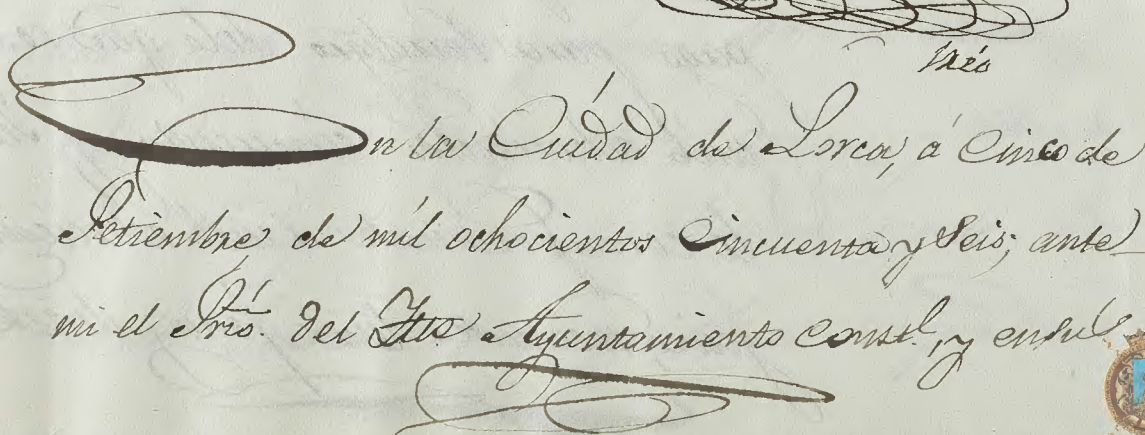 En la Ciudad de Lorca, á Cinco de
Setiembre de mil ochocientos Cincuenta y Seis; ante
mi el Srio. del Ytre Ayuntamiento Constl., y en su